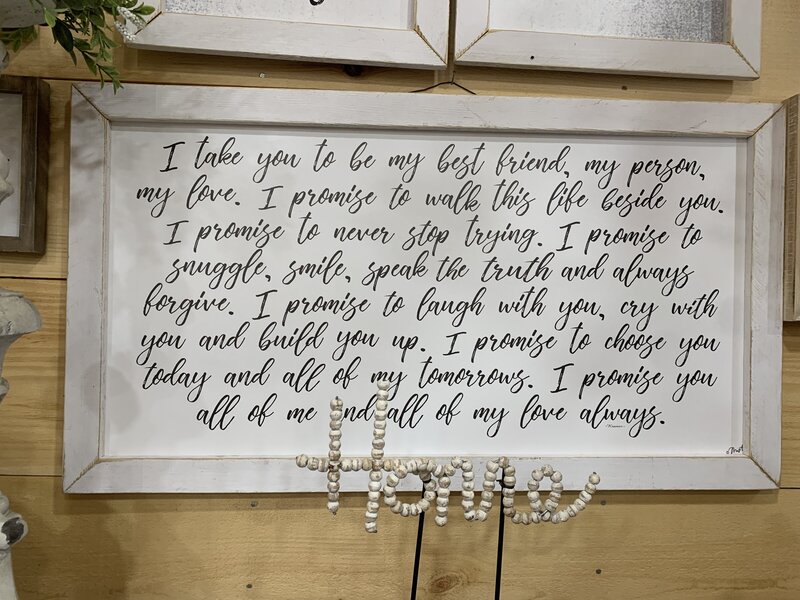 I take you to be my best friend, my person,
my love. I promise to walk this life beside you.
I promise to never stop trying. I promise to
snuggle, smile, speak the truth and always
forgive. I promise to laugh with you, cry with
you and build you up. I promise to choose you
today and all of my tomorrows. I promise you
all of me and all of my love always.
Home